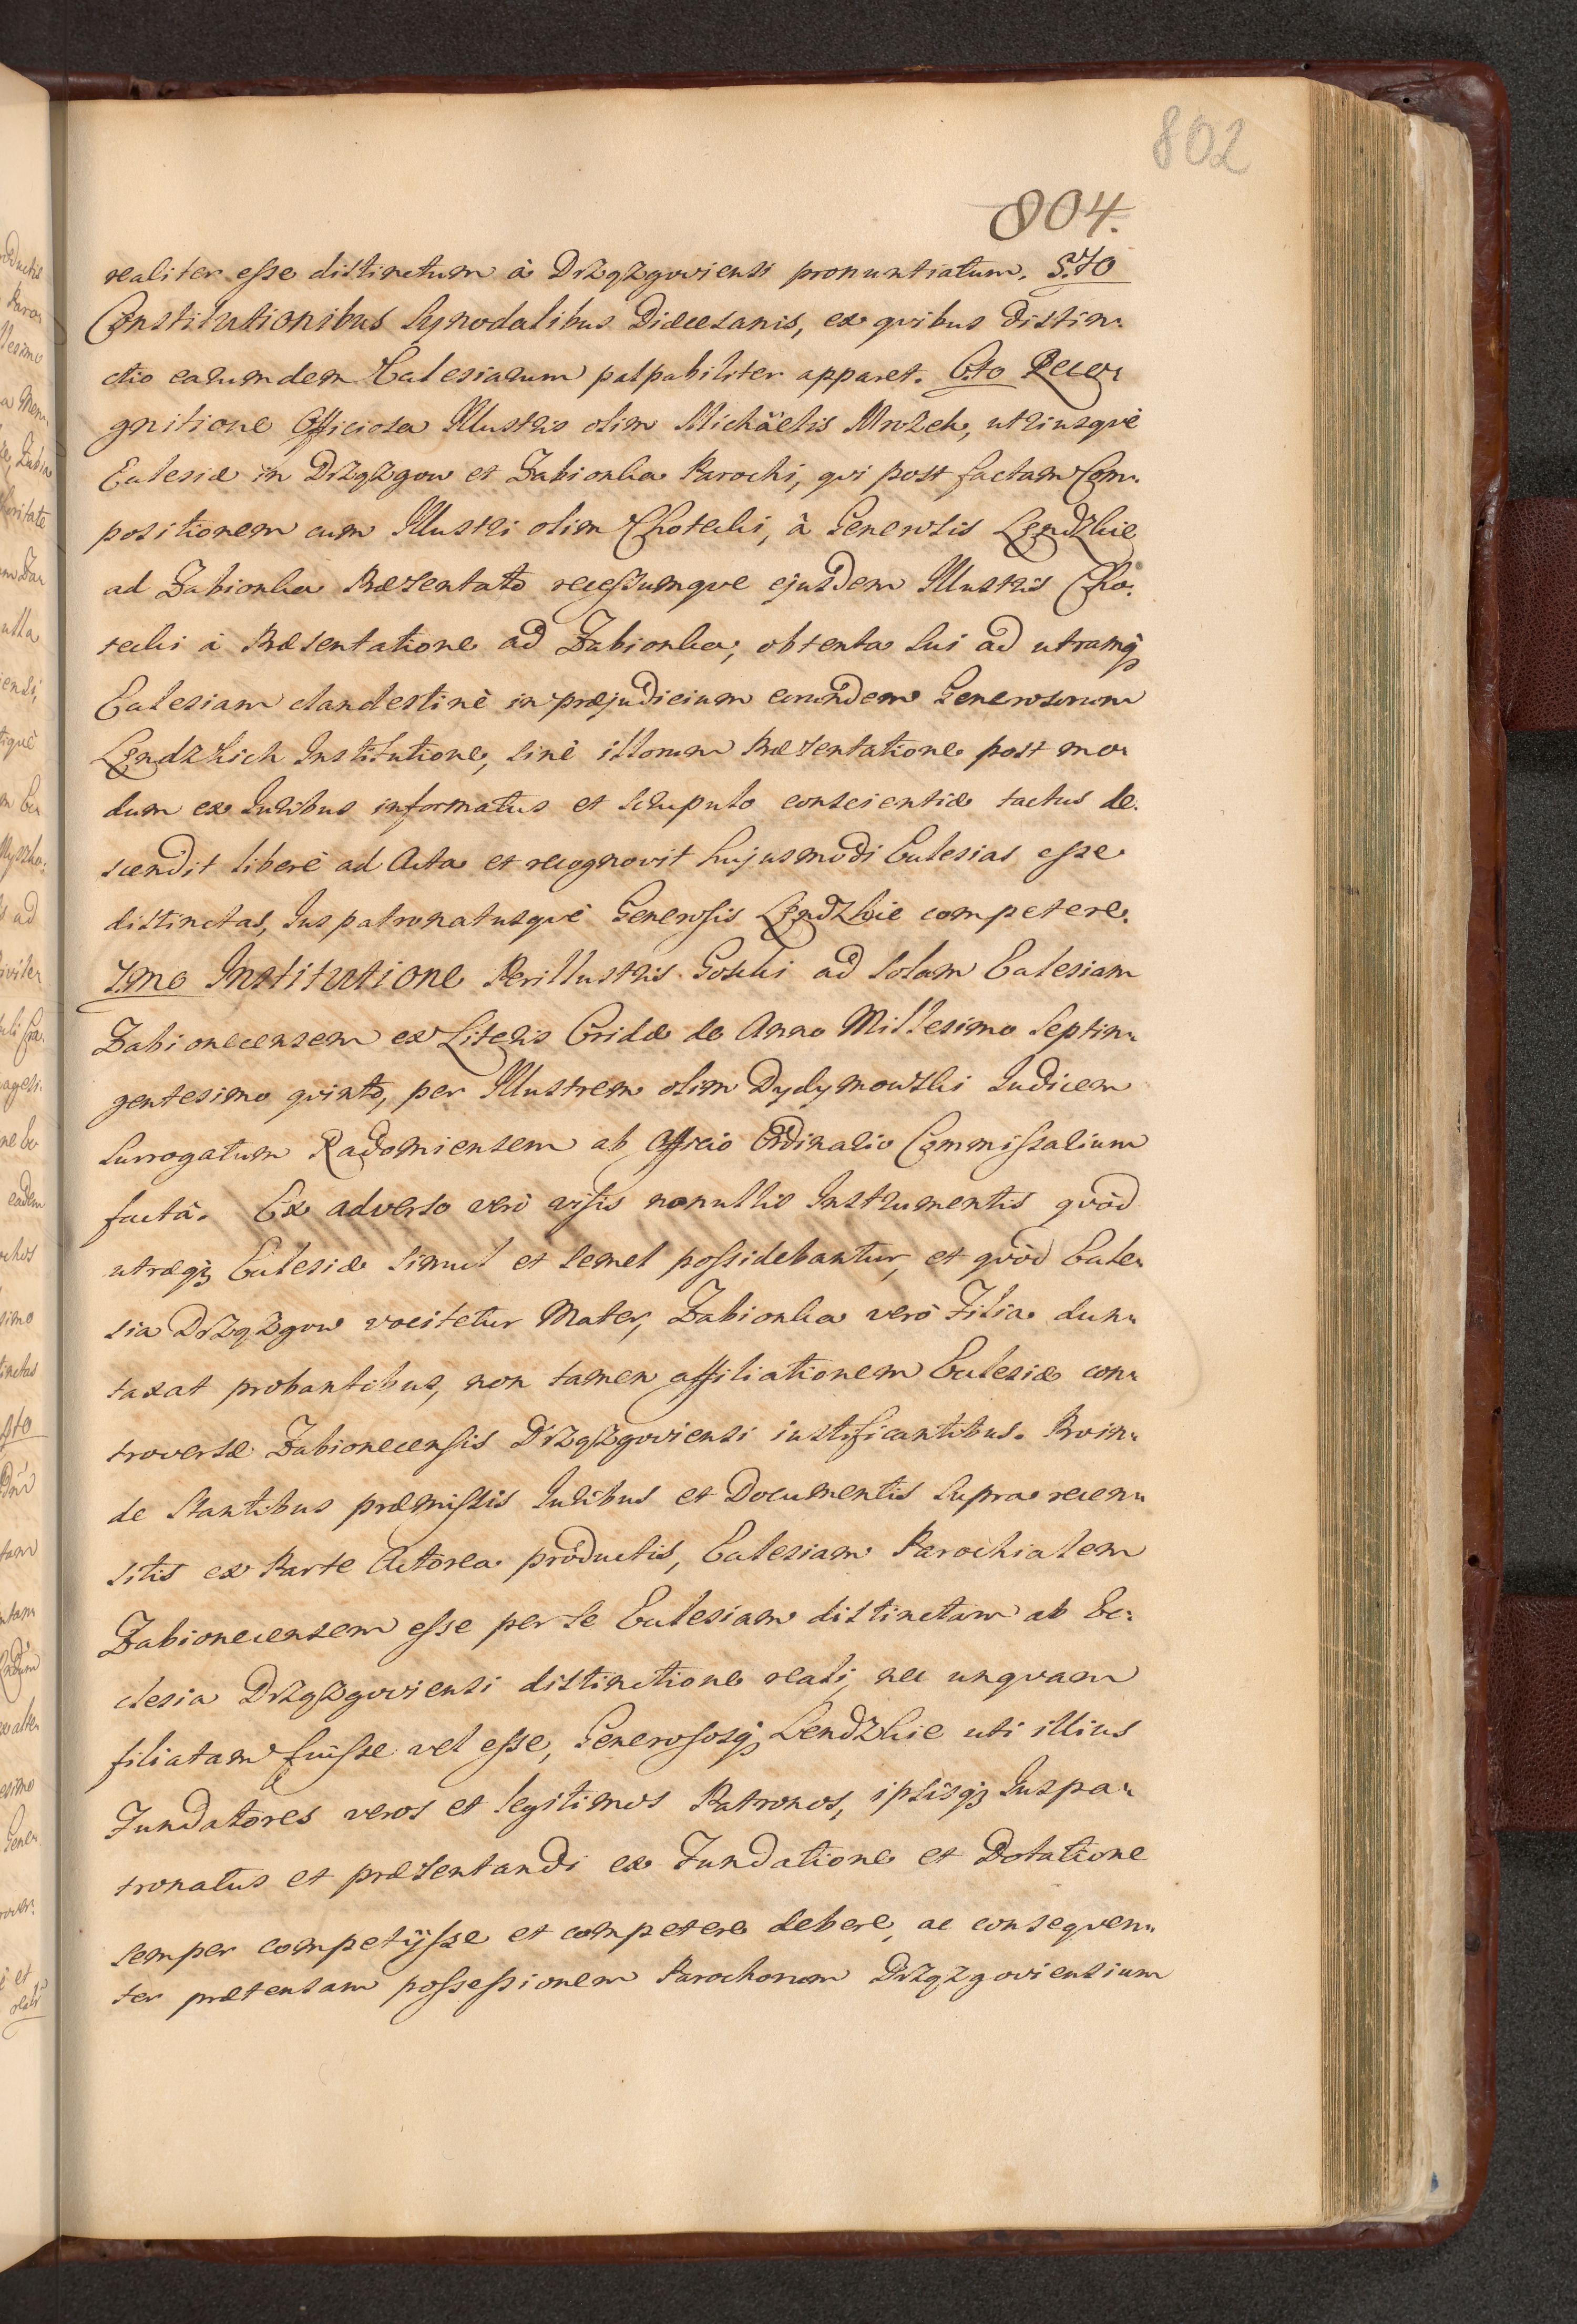 802
804.
realiter esse distinctum à Drzązgoviensi pronuntiatum. 5.to
Constitutionibus Synodalibus Diæcesanis, ex quibus distin„
ctio earumdem Ecclesiarum palpabiliter apparet. 6.to Reco„
gnitione Officiosa Illustris olim Michäelis Mrozek, utriusquè
Eclesiæ in Drzązgow et Żabionka Parochi, qvi post factam Com„
positionem cum Illustri olim Chotecki, à Generosis Lendzkie
ad Żabionka Præsentato recessumque ejusdem Illustris Cho„
tecki à Præsentatione ad Żabionka, obtenta sui ad utramq̃
Eclesiam clandestinè in præjudicium eorundem Generosorum
Lendzkich Institutione, sinè illorum Præsentatione post mo„
dum ex Iuribus informatus et scrupulo conscientiæ tactus de„
scendit liberè ad Acta et recognovit hujusmodi Eclesias esse
distinctas, Jus patronatusquè Generosis Lendzkie competere.
7.mo Institutione Perillustris Goski ad solam Eclesiam
Żabionecensem ex Literis Cridæ de Anno Millesimo Septin„
gentesimo qvinto, per Illustrem olim Dydymowski Iudicem
Surrogatum Radomiensem ab Officio Ordinario Commissarium
factâ. Ex adverso verò visis nonullis Instrumentis qvòd
utræq̃ Eclesiæ simul et semel possidebantur, et qvòd Ecle„
sia Drzązgow vocitetur Mater, Żabionka verò Filia dun„
taxat probantibus, non tamen affiliationem Eclesiæ con„
troversæ Żabionecensis Drzązgoviensi iustificantibus. Proin„
de stantibus præmissis Iuribus et Documentis supra recen„
sitis ex Parte Actorea productis, Eclesiam Parochialem
Żabionecensem esse per se Eclesiam distinctam ab Ec„
clesia Drzązgoviensi distinctione reali, nec unquam
filiatam fuisse vel esse, Generososq̃ Lendzkie uti illius
Fundatores veros et legitimos Patronos, ipsisq̃ Juspa„
tronatus et præsentandi ex Fundatione et Dotatione
semper competijsse et competere debere, ac conseqven„
ter prætensam possessionem Parochorum Drzązgoviensium